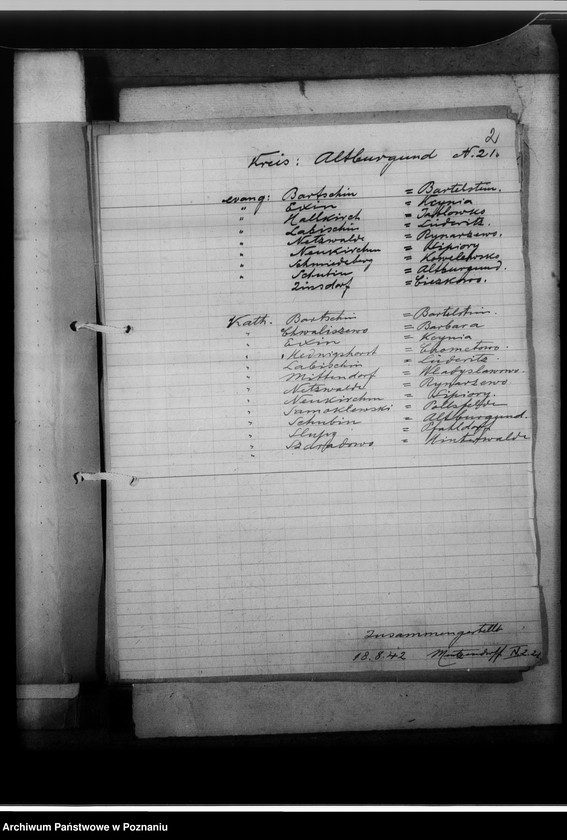 2
Kreis: Altburgund N. 21.
evang: Bartschin = Bartelstein.
" Exin = Keynia
" Hallkirch = Jabłowko
" Labischin = Lüderitz.
" Netzwalde = Rynarzewo.
" Neukirchen = Wipiory
" Schmiedeberg = Kowelewsko
" Schubin = Altburgund.
Zinsdorf = Cieszkowo.
Kath. Bartschin = Bartelstein.
" Chwaliszewo = Barbara
" Exin = Keynia
" Hedwigshorst = Chometowo.
" Labischin = Lüderitz.
" Mittendorf = Władysławowo.
" Netzwalde = Rynarzewo
" Neukirchen = Wipiory.
" Samoklewski =
" Schubin = Altburgund.
" Slupy = Pfahldorf
" Szaradowo = Winterwalde
"
Zusammengestellt
18.8.42
Archiwum Państwowe w Poznaniu